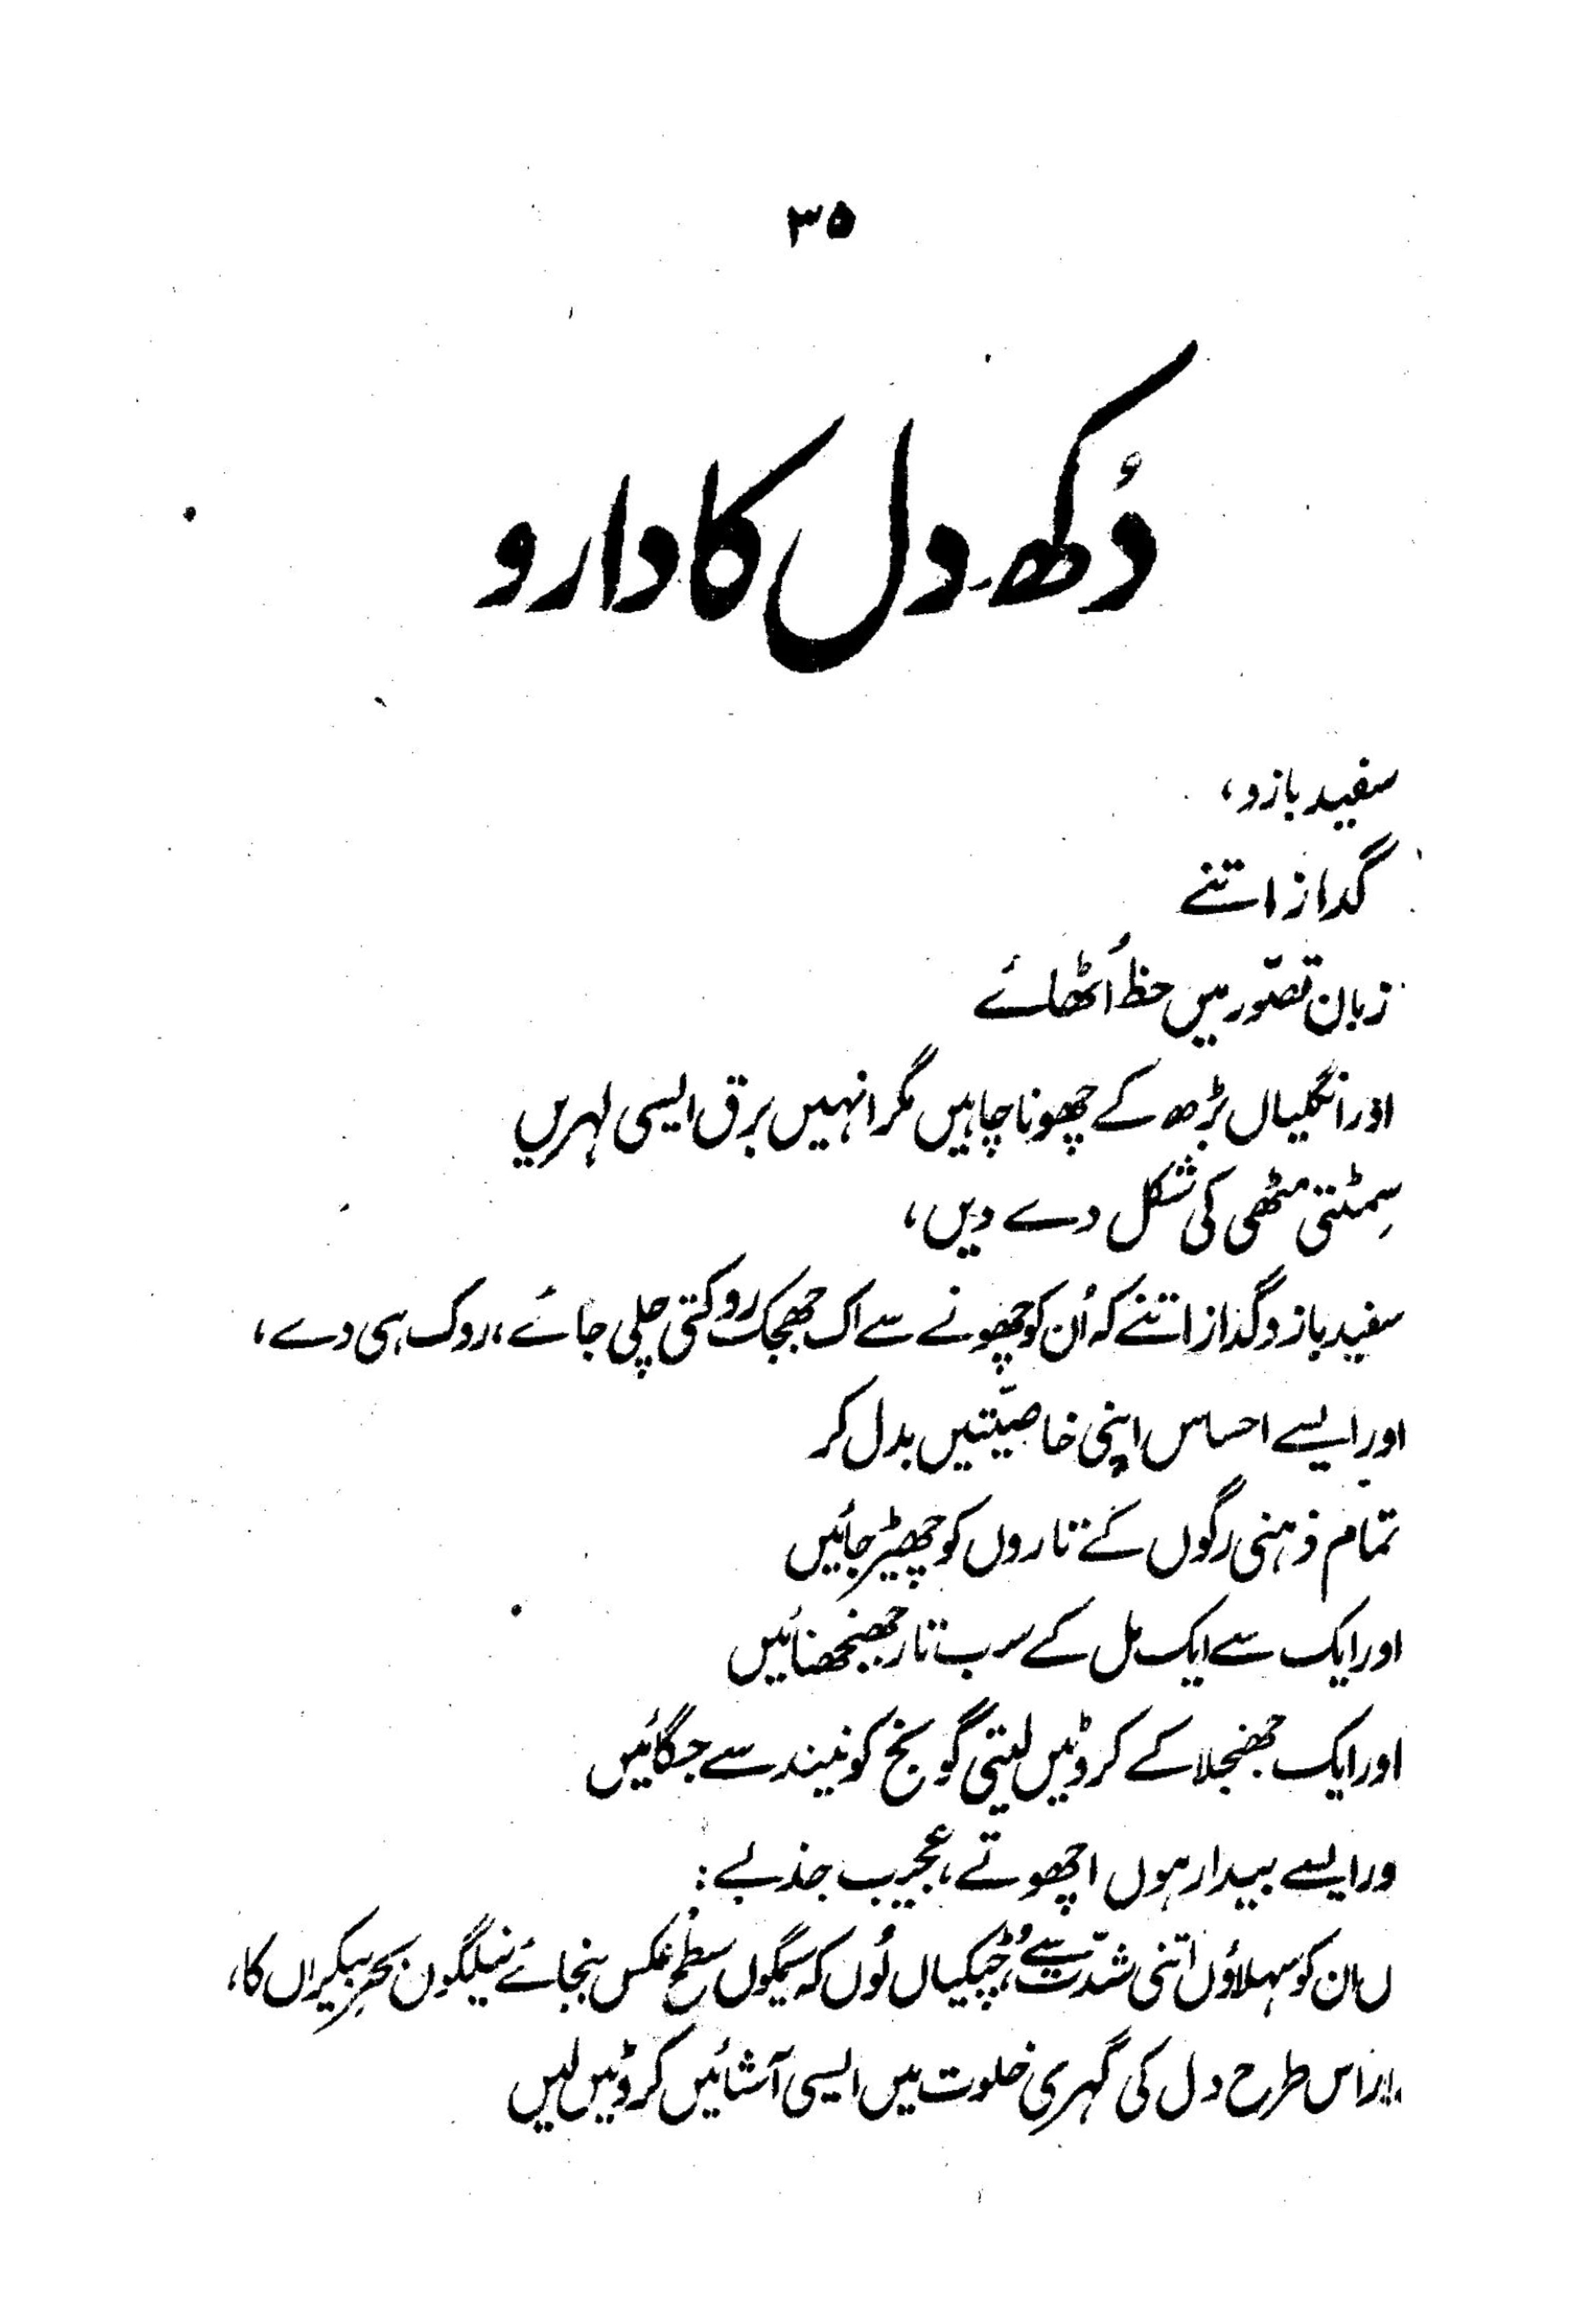 ۳۵
دُکھ۔ دل کا دارو
سفید بازو،
گداز اتنے
زبان تصّور میں حظ اُٹھائے
اور انگلیاں بڑھ کے چھونا چاہیں مگر انہیں برق ایسی لہریں
سِمٹتی مٹھی کی شکل دے دیں،
سفید بازو گداز اتنے کہ اُن کو چھونے سے اک جھجک روکتی چلی جائے، روک ہی دے،
اور ایسے احساس اپنی خاصیّتیں بدل کر
تمام ذہنی رگوں کے تاروں کو چھیڑ جائیں
اور ایک سے ایک مل کے سب تار جھنجھنائیں
اور ایک جھنجلا کے کروٹیں لیتی گونج کو نیند سے جگائیں
ور ایسے بیدار ہوں اچھوتے، عجیب جذبے:
ں ان کو سہلاؤں اتنی شدّت سے، چٹکیاں لُوں کہ سیمگوں سطح عکس بنجائے نیلگون بحرِ بیکراں کا،
اس طرح دل کی گہری خلوت میں ایسی آشائیں کروٹیں لیں